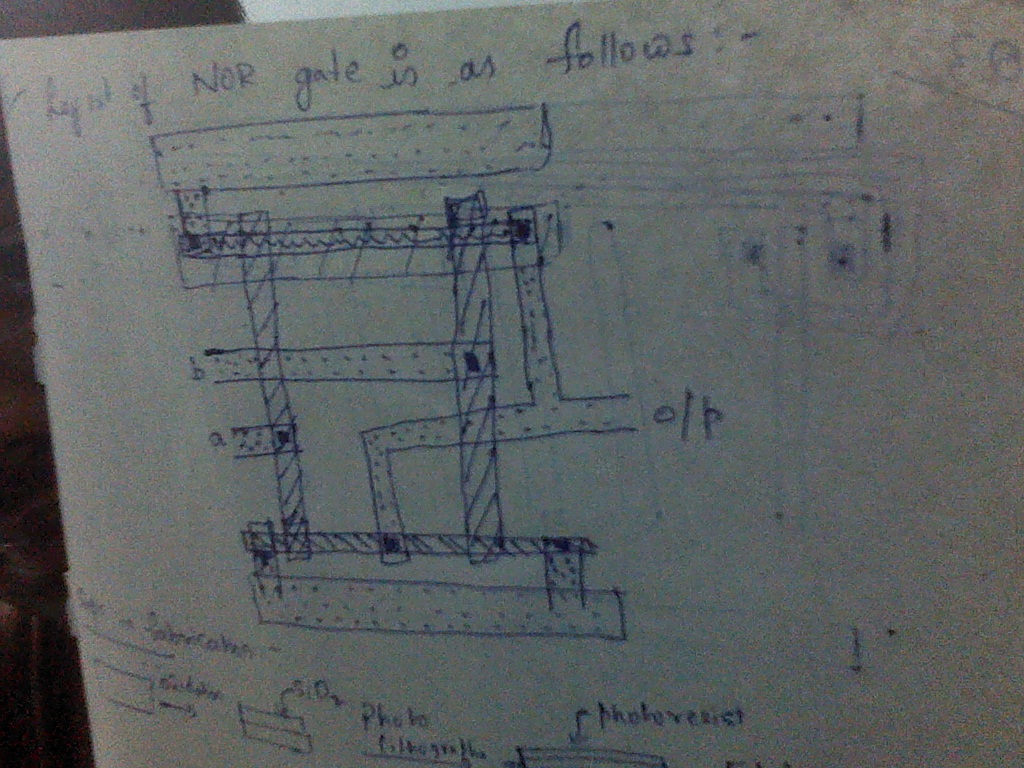 Layout of NOR gate is as follows:-
b
a
o/p
fabrication -
SiO2
Photo
lithography
photoresist